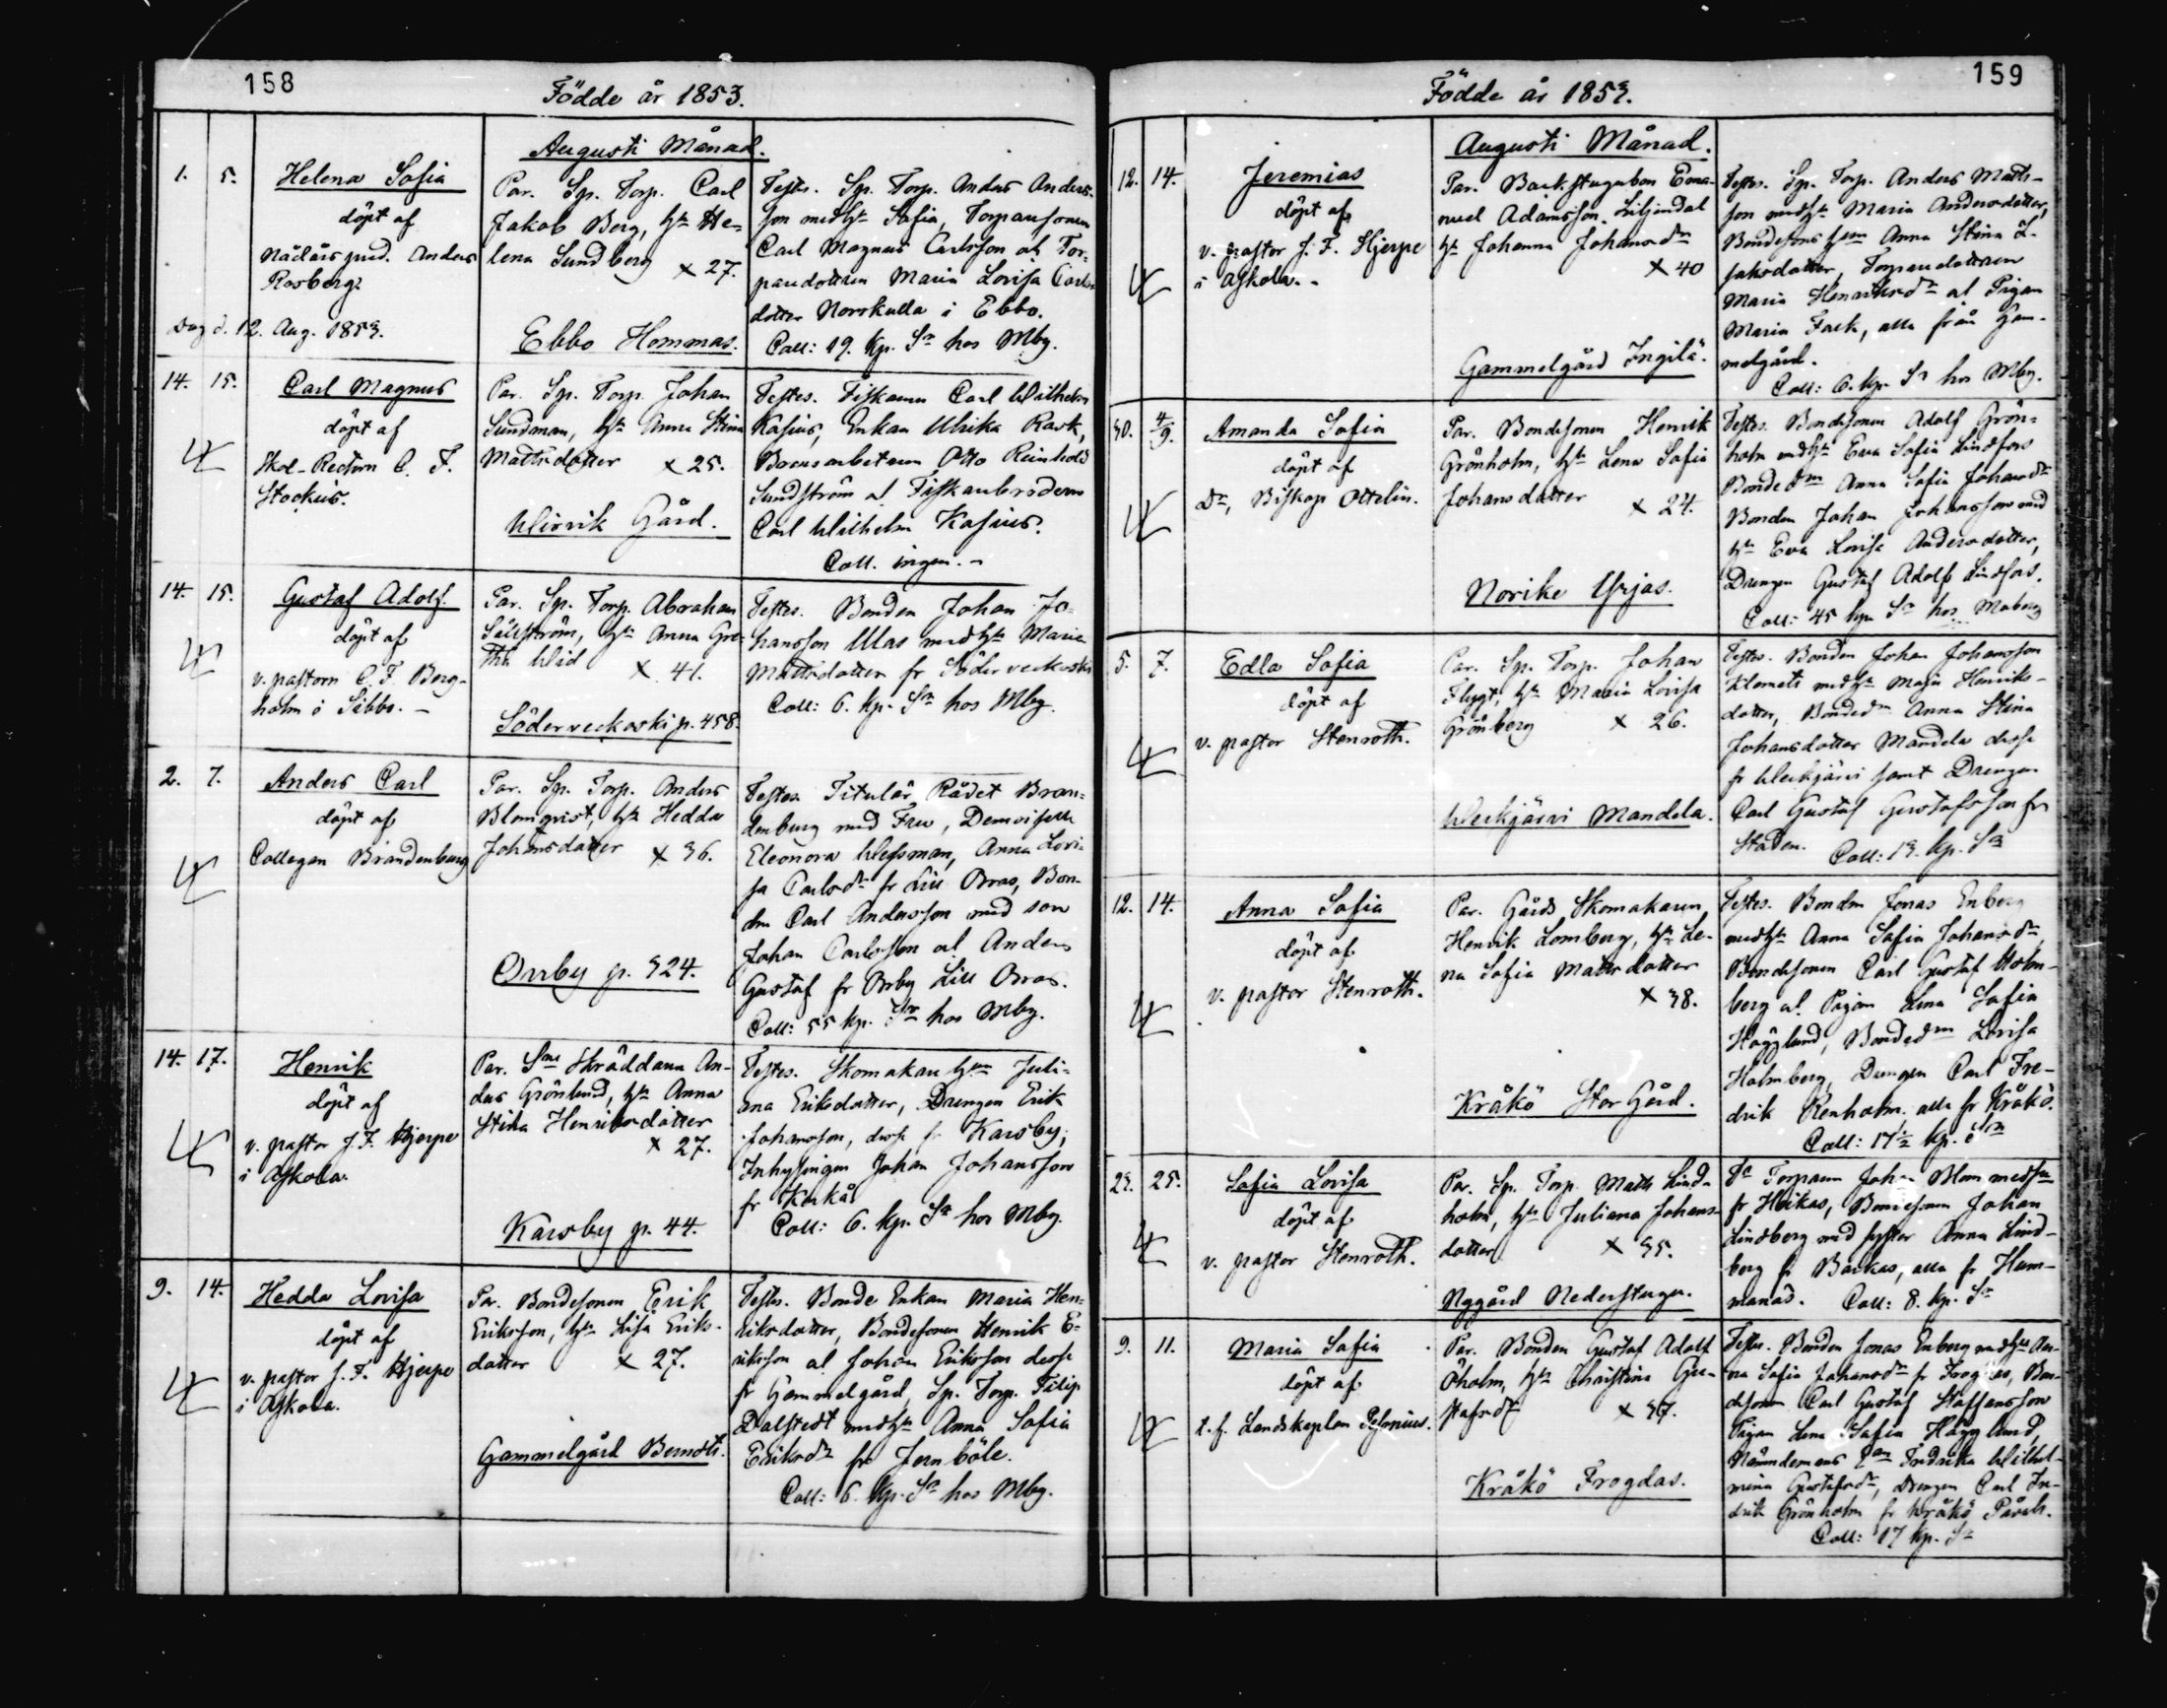 158
Födde år 1853.
Augusti Månad.
1. 5. Helena Sofia
döpt af
Nådårs pred. Anders
Rosberg
död d. 12. Aug. 1853.
Par. Sp. Torp. Carl
Jakob Berg, hu He-
lena Sundberg × 27.
Ebbo Hommas.
Testes. Sp. Torp. Anders Anders-
son med hu Sofia, Torparsonen
Carl Magnus Carlsson al Tor-
paredottren Maria Lovisa Carls-
dotter Norrkulla i Ebbo.
Coll: 19. kp. Sr hos Mbg.
14. 15. Carl Magnus
döpt af
Skol-Rectorn C. F.
Stockus.
Par. Sp. Torp. Johan
Sundman, hu Anna Stina
Mattsdotter × 25.
Uvirik Gård.
Testes. Fiskaren Carl Wilhelm
Kasius, Enkan Ulrika Rask,
Otto Reinhold
Sundström al
Carl Wilhelm Kasius.
Coll. ingen. -
14. 15. Gustaf Adolf.
döpt af
v. pastorn C. F. Berg-
holm i Sibbo. -
Par. Sp. Torp. Abraham
Sälström, hu Anna Gre-
tha Wid × 41.
Söderveckoski p. 458.
Testes. Bonden Johan Jo-
hansson Ulas med hu Maria
Mattsdotter fr Söderveckoski
Coll: 6. kp. Sr hos Mbg.
2. 7. Anders Carl
döpt af
Collegan Brandenburg
Par. Sp. Torp. Anders
Blomqvist, hu Hedda
Johansdotter × 36.
Orrby p. 324.
Testes. Titulär Rådet Bran-
denburg med Fru, Demoiselle
Eleonora Wessman, Anna Lovi-
sa Carlsdr fr Lill Orras, Bon-
den Carl Andersson med son
Johan Carlsson al Anders
Gustaf fr Orrby Lill Orras.
Coll: 55 kp. Sr hos Mbg.
14. 17. Henrik
döpt af
v. pastor J. F. Hjerpe
i Askola.
Par. Sne Skräddaren An-
ders Grönlund, hu Anna
Stina Henriksdotter
× 27.
Karsby p. 44.
Testes. Skomakare hun Juli-
ana Eriksdotter, Drengen Erik
Johansson, desse fr Karsby,
Inhysingen Johan Johansson
fr
Coll: 6. kp. Sr hos Mbg.
9. 14. Hedda Lovisa
döpt af
v. pastor J. F. Hjerpe
i Askola.
Par. Bondesonen Erik
Eriksson, hu Lisa Eriks-
dotter × 27.
Gammelgård Berndts.
Testes. Bonde Enkan Maria Hen-
riksdotter, Bondesonen Henrik E-
riksson al Johan Eriksson desse
fr Gammelgård, Sp. Torp. Filip
Dalstedt med hu Anna Sofia
Eriksdr fr Jernböle.
Coll: 6. kp. Sr hos Mbg.
159
Födde år 1853.
Augusti Månad.
12. 14. Jeremias
döpt af
v. pastor J. F. Hjerpe
i Askola. -
Par. Backstugubon Ema-
nuel Adamsson, Liljendal
hu Johanna Johansdr
× 40
Gammelgård Ingilä.
Testes. Sp. Torp. Anders Matts-
son med hu Maria Andersdotter,
Bondesons hun Anna Stina I-
saksdotter, Torparedottren
Maria Henriksdr al Pigan
Maria Falk, alla från Gam-
melgård.
Coll: 6. kp. Sr hos Mbg.
30. 4/9. Amanda Sofia
döpt af
Dr, Biskop Ottelin.
Par. Bondesonen Henrik
Grönholm, hu Lena Sofia
Johansdotter × 24.
Norike Yrjas.
Testes. Bondesonen Adolf Grön-
holm med hu Eva Sofia Lindfors
Bonde Anna Sofia Johansdr
Bonden Johan Johansson med
hu Eva Lovisa Andersdotter,
Drengen Gustaf Adolf Lindfors.
Coll: 45 kp. Sr hos Mbg
5. 7. Edla Sofia
döpt af
v. pastor Stenroth.
Par. Sp. Torp. Johan
Flygt, hu Maria Lovisa
Grönberg × 26.
Weckjärvi Mandela.
Testes. Bonden Johan Johansson
Klemets med hu Maja Henriks-
dotter, Anna Stina
Johansdotter Mandela desse
fr Weckjärvi samt Drengen
Carl Gustaf Gustafsson fr
Staden. Coll: 13. kp. Sr
12. 14. Anna Sofia
döpt af
v. pastor Stenroth.
Par. Gårds Skomakaren
Henrik Lomberg, hu Le-
na Sofia Mattsdotter
× 38.
Kråkö Stor Gård.
Testes. Bonden Jonas Enberg
med hu Anna Sofia Johansdr
Bondesonen Carl Gustaf Holm-
berg al Pigan Lena Sofia
Hägglund, Lovisa
Holmberg, Drengen Carl Fre-
drik Renholm, alla fr Kråkö.
Coll: 17½ kp. Sr
23. 25. Sofia Lovisa
döpt af
v. pastor Stenroth.
Par. Sp. Torp. Matts Lind-
holm, hu Juliana Johans-
dotter × 35.
Nygård Nederstugu.
Ts Torparen Johan Blom med hu
fr Heikas, Bondesonen Johan
Lindberg med syster Anna Lind-
berg fr Backas, alla fr Ham-
manäs. Coll: 8. kp. Sr
9. 11. Maria Sofia
döpt af
t. f. Landskaplan Pesonius.
Par. Bonden Gustaf Adolf
Öholm, hu Christina Gu-
stafsdr × 37.
Kråkö Frogdas.
Testes. Bonden Jonas Enberg med hu An-
na Sofia Johansdr fr Frogdas, Bon-
desonen Carl Gustaf Staffansson
Pigan Lena Sofia Hägglund,
Nämndemans Fredrika Wilhel-
mina Gustafsdr, Drengen Carl Fre-
drik Grönholm fr Kråkö Påvals.
Coll: 17 kp. Sr